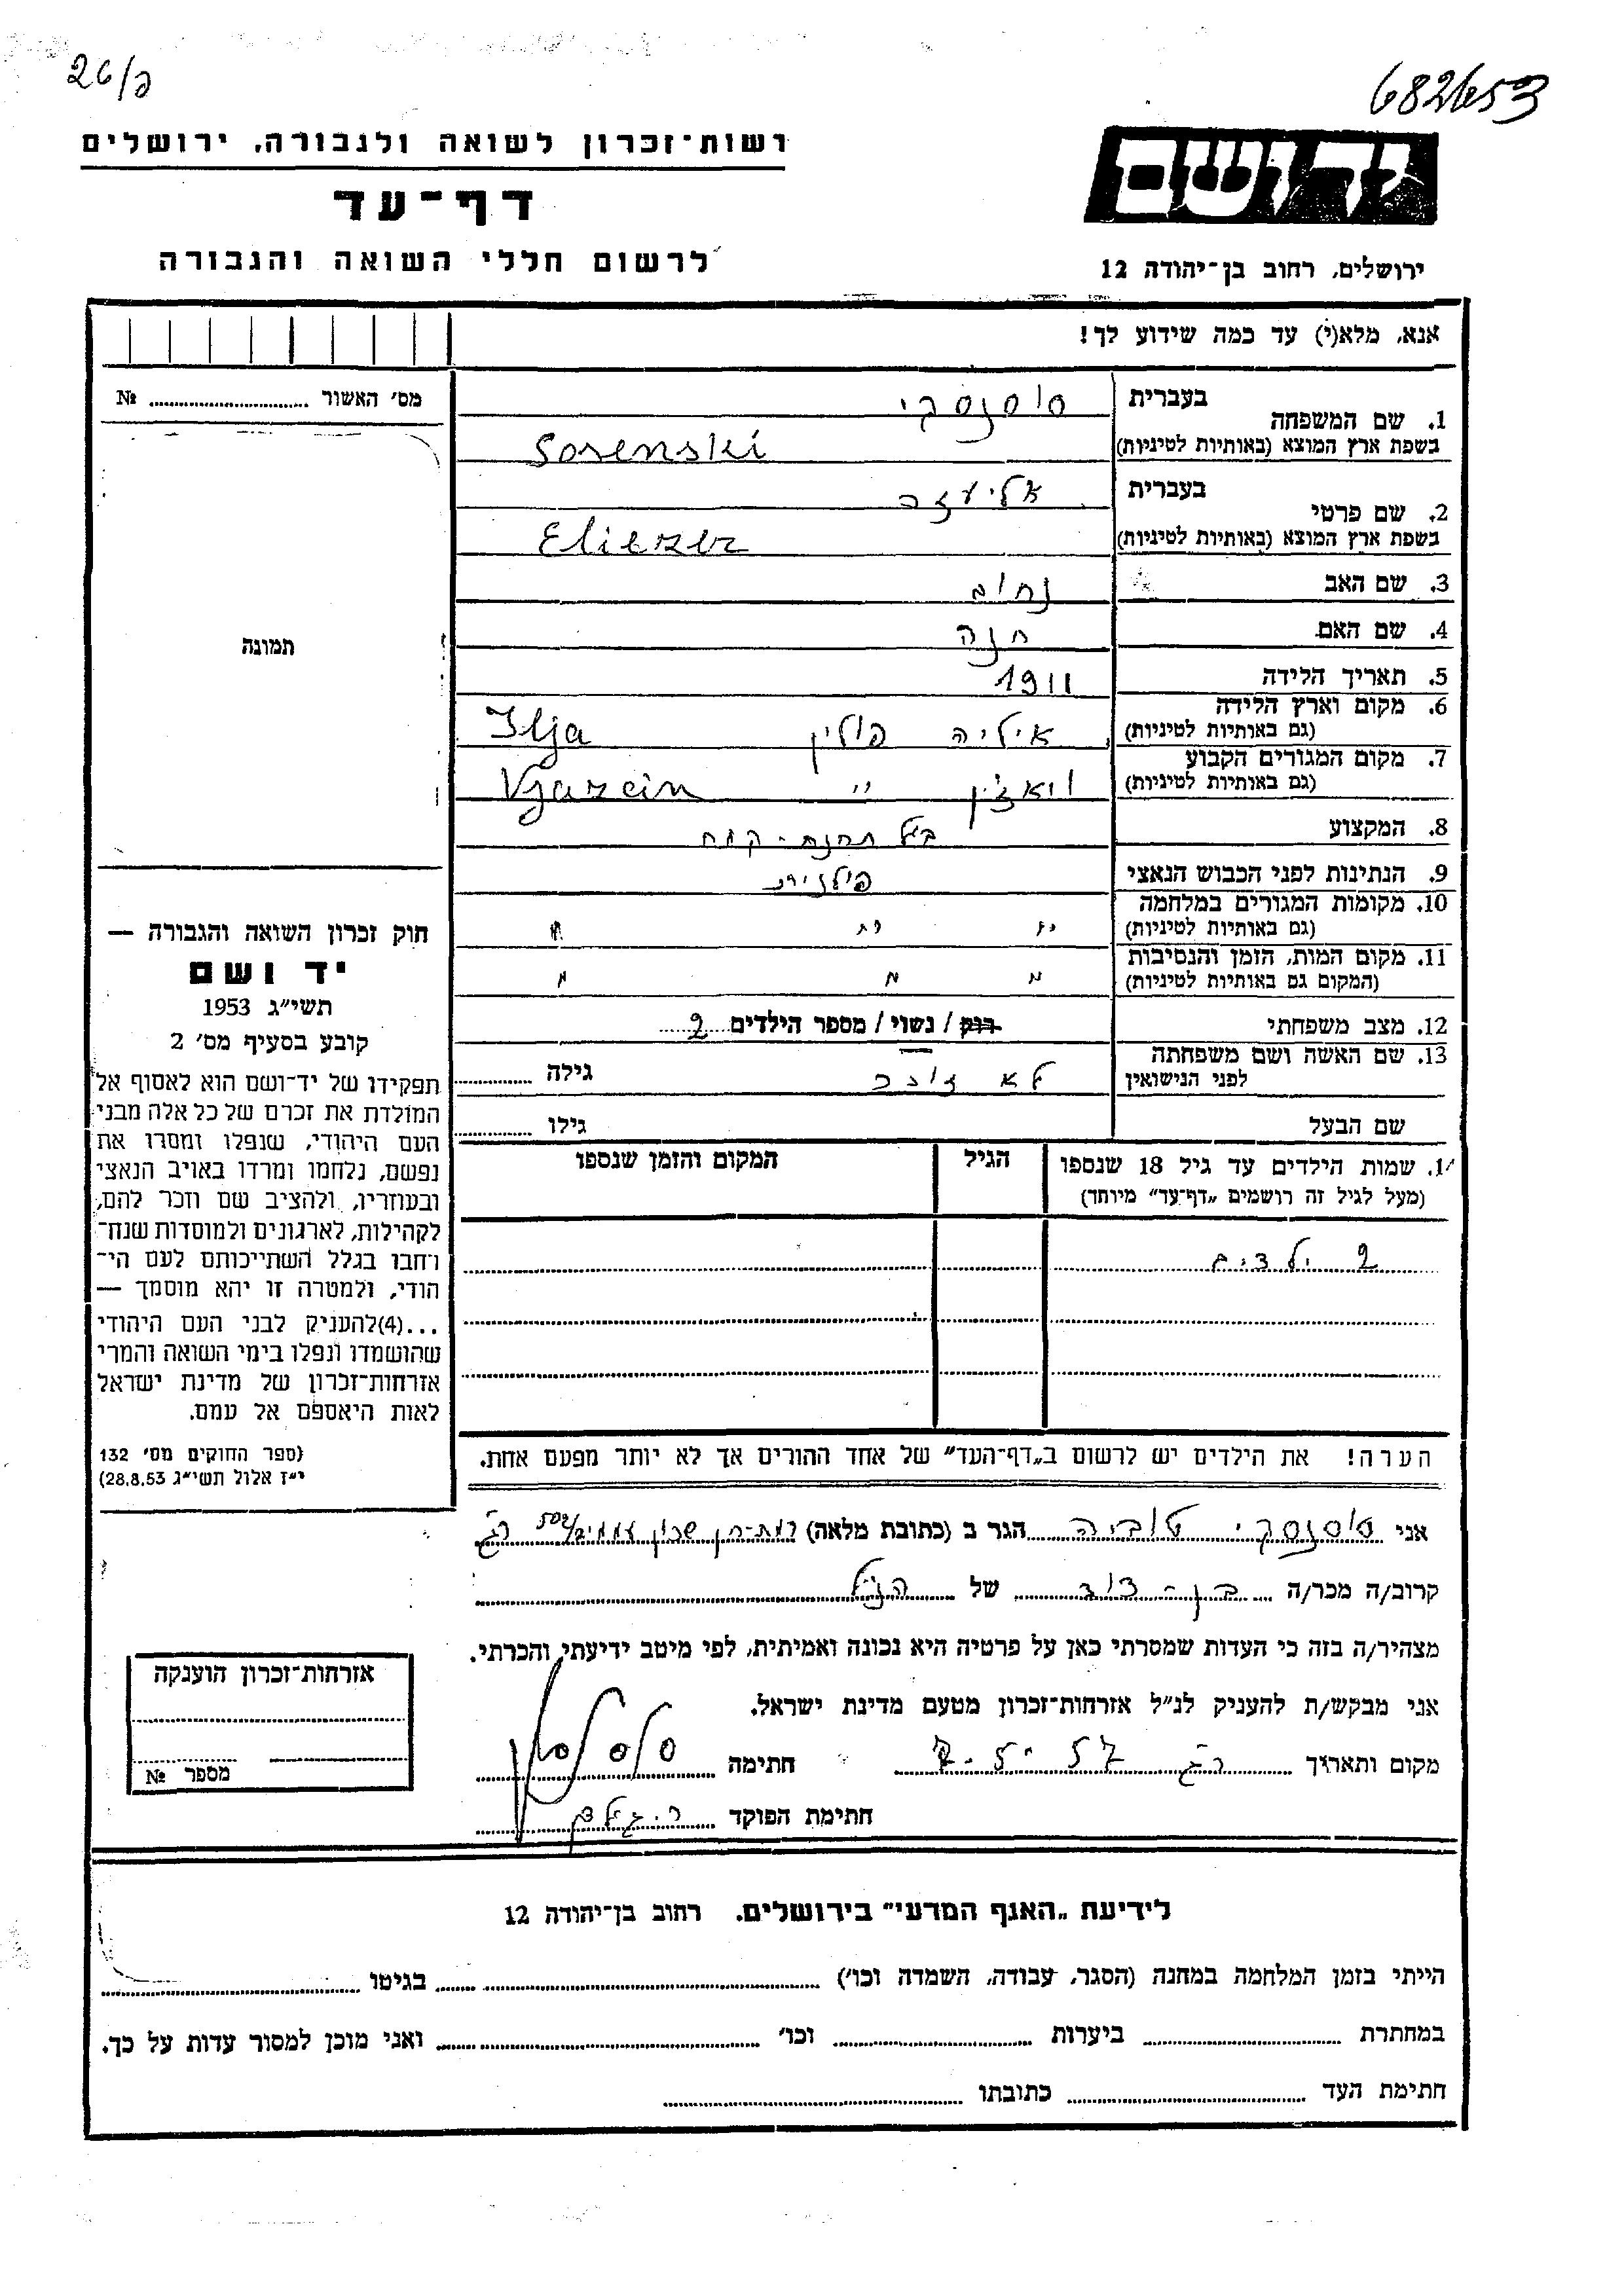 26/ק
682653
רשות־זכרון לשואה ולגבורה, ירושלים
דף־עד
לרשום חללי השואה והגבורה
יד ושם
ירושלים, רחוב בן־יהודה 12
אנא, מלא(י) עד כמה שידוע לך!
מס׳ האשור № ........
תמונה
1. שם המשפחה בעברית סוסנסקי
בשפת ארץ המוצא (באותיות לטיניות) Sosenski
2. שם פרטי בעברית אליעזר
בשפת ארץ המוצא (באותיות לטיניות) Eliezer
3. שם האב נחום
4. שם האם חנה
5. תאריך הלידה 1911
6. מקום וארץ הלידה (גם באותיות לטיניות) איליה פולין Ilja
7. מקום המגורים הקבוע (גם באותיות לטיניות) ויאזין " Vjazcin
8. המקצוע בעל תחנת-קמח
9. הנתינות לפני הכבוש הנאצי פולנית
10. מקומות המגורים במלחמה (גם באותיות לטיניות) " " "
11. מקום המות, הזמן והנסיבות (המקום גם באותיות לטיניות) " " "
12. מצב משפחתי רווק / נשוי / מספר הילדים 2
13. שם האשה ושם משפחתה לפני הנישואין לא זוכר גילה ........
שם הבעל גילו ........
14. שמות הילדים עד גיל 18 שנספו (מעל לגיל זה רושמים „דף־עד" מיוחד) הגיל המקום והזמן שנספו
2 ילדים
הערה! את הילדים יש לרשום ב„דף־העד" של אחד ההורים אך לא יותר מפעם אחת.
חוק זכרון השואה והגבורה —
יד ושם
תשי״ג 1953
קובע בסעיף מס׳ 2
תפקידו של יד־ושם הוא לאסוף אל
המולדת את זכרם של כל אלה מבני
העם היהודי, שנפלו ומסרו את
נפשם, נלחמו ומרדו באויב הנאצי
ובעוזריו, ולהציב שם וזכר להם,
לקהילות, לארגונים ולמוסדות שנח־
רחבו בגלל השתייכותם לעם הי־
הודי, ולמטרה זו יהא מוסמך —
...(4)להעניק לבני העם היהודי
שהושמדו ונפלו בימי השואה והמרי
אזרחות־זכרון של מדינת ישראל
לאות היאספם אל עמם.
(ספר החוקים מס׳ 132
י״ז אלול תשי״ג 28.8.53)
אני סוסנסקי טוביה הגר ב (כתובת מלאה) רמת-גן שכון עממי
קרוב/ה מכר/ה בן-דוד של הנ"ל
מצהיר/ה בזה כי העדות שמסרתי כאן על פרטיה היא נכונה ואמיתית, לפי מיטב ידיעתי והכרתי.
אני מבקש/ת להעניק לנ״ל אזרחות־זכרון מטעם מדינת ישראל.
מקום ותאריך רג 7-5-57 חתימה
חתימת הפוקד
אזרחות־זכרון הוענקה
מספר №
לידיעת „האגף המדעי" בירושלים. רחוב בן־יהודה 12
הייתי בזמן המלחמה במחנה (הסגר, עבודה, השמדה וכו׳) ........ בגיטו ........
במחתרת ........ ביערות ........ וכו׳ ........ ואני מוכן למסור עדות על כך.
חתימת העד ........ כתובתו ........